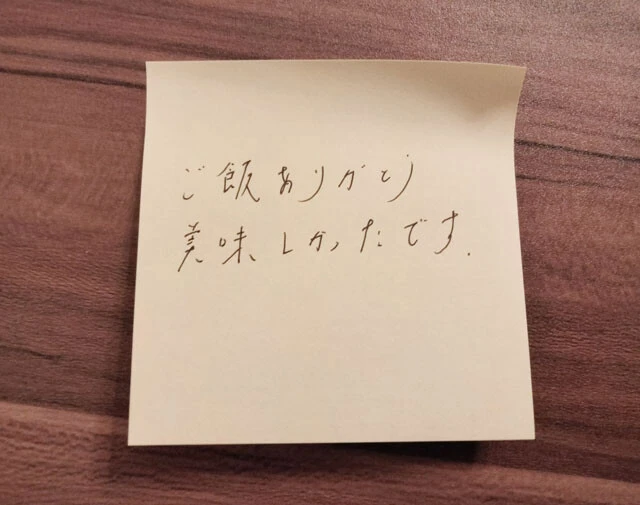 ご飯ありがとう
美味しかったです.